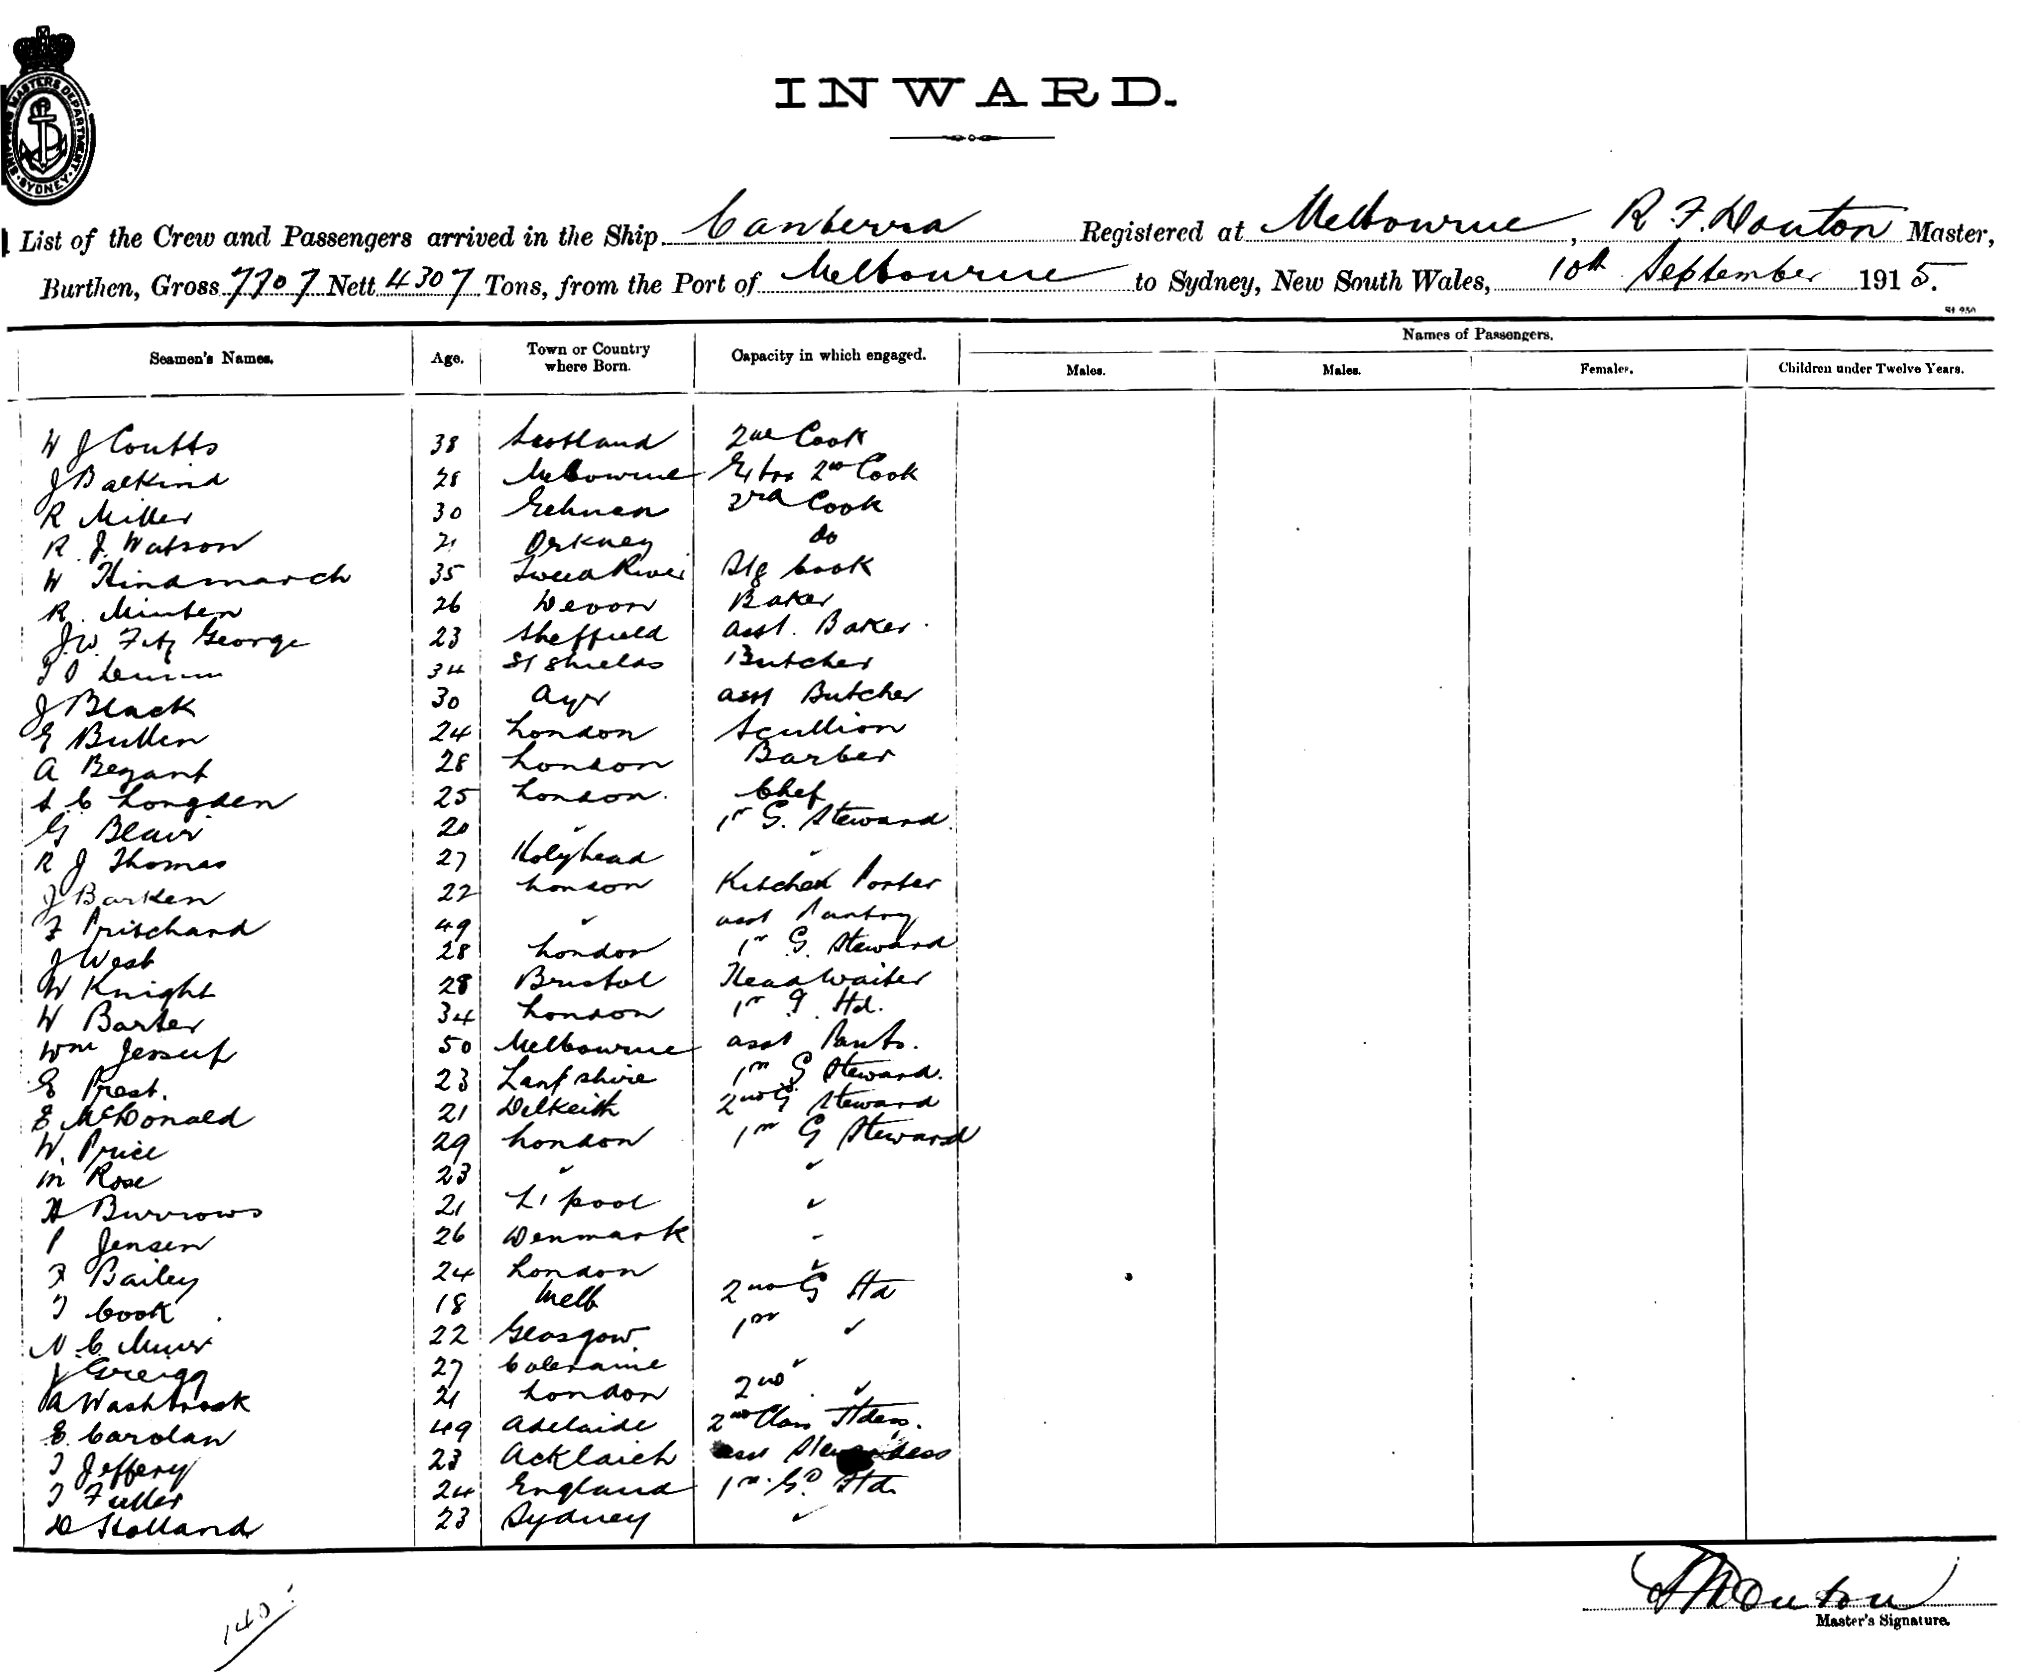 SHIPPING MASTERS DEPARTMENT
SYDNEY
INWARD.
List of the Crew and Passengers arrived in the Ship Canberra Registered at Melbourne, R. F. Douton Master,
Burthen, Gross 7707 Nett 4307 Tons, from the Port of Melbourne to Sydney, New South Wales, 10th September 1915.
Names of Passengers.
Seamen's Names. Age. Town or Country where Born. Capacity in which engaged. Males. Males. Females. Children under Twelve Years.
W J Coutts 38 Scotland 2nd Cook
J Balkind 28 Melbourne Extra 2nd Cook
R Miller 30 3rd Cook
R. J. Watson 21 Orkney do
W Hindmarch 35 Tweed River Cook
R. Minten 26 Devon Baker
J. W. Fitz George 23 Sheffield asst. Baker
34 St Shields Butcher
J Black 30 Ayr asst Butcher
E Bullen 24 London Scullion
A Bezant 28 London Barber
S. C Longden 25 London. Chef
G Blair 20 " 1st G. Steward.
R J Thomas 27 Holyhead "
J Barken 22 London Kitchen Porter
F Pritchard 49 " asst Pantry
J West 28 London 1st G. Steward
W Knight 28 Bristol Head Waiter
W Barter 34 London 1st G. Std.
Wm Jessup 50 Melbourne asst Pants.
E Prest. 23 1st G Steward.
E McDonald 21 Dalkeith 2nd G Steward
W. Price 29 London 1st G Steward
M Rose 23 " "
H Burrows 21 L'pool "
P Jensen 26 Denmark "
F Bailey 24 London "
T Cook 18 Melb 2nd G Std
N. C Muir 22 Glasgow. 1st "
J Greigg 27 Coleraine "
A Washbrook 21 London 2nd "
E. Carolan 49 Adelaide 2nd Class Stdess.
T Jeffery 23 asst Stewardess
T Fuller 24 England 1st Gd Std.
D Holland 23 Sydney "
140
Master's Signature.